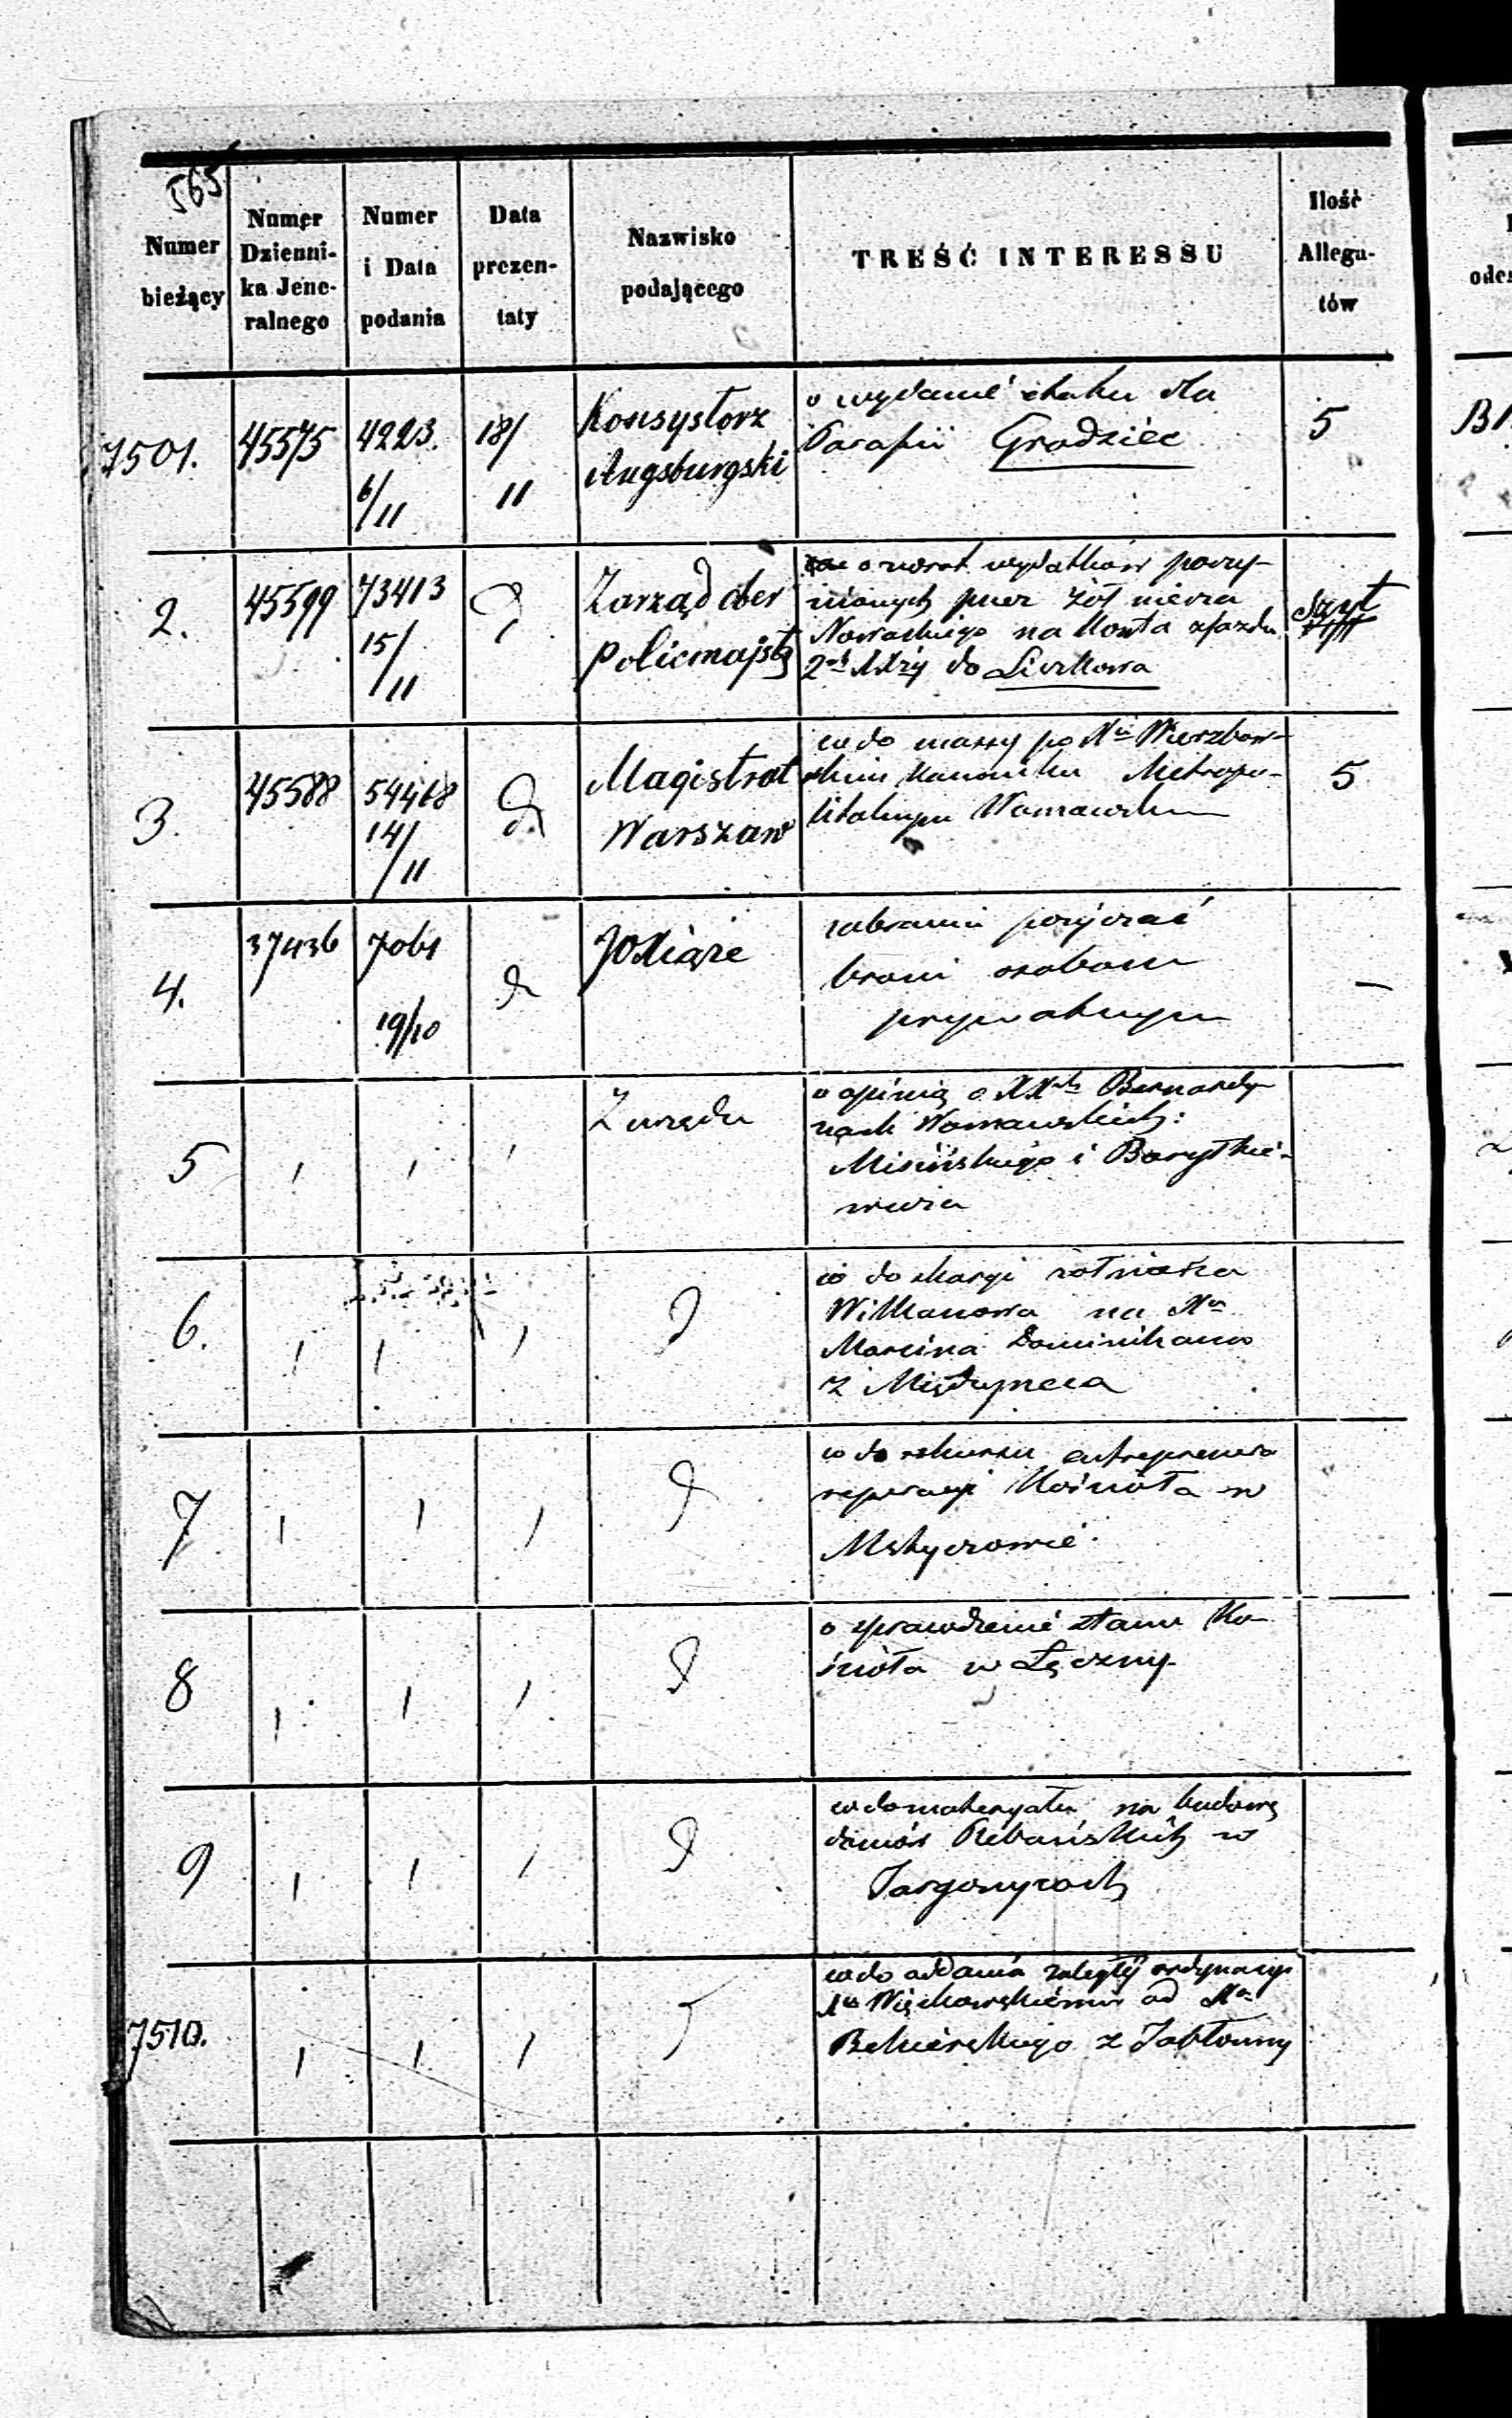 565
Numer bieżący
Numer Dzienni-ka Jene-ralnego
Numer i Data podania
Data prezen-taty
Nazwisko podającego
TREŚĆ INTERESSU
Ilość Allegu-tów
7501. 45575 4223. 6/11 18/11 Konsystorz Augsburgski
o wydanie etatu dla
Parafii Grodziec
5
2. 45599 73413 15/11 Zarząd ober Policmajst
o zwrot wydatków poczy-
nionych przez żołnierza
Nowackiego na koszta zjazdu
do Liszkowa
Szyt
3. 45588 54468 14/11 Magistrat Warszaw
co do massy po Xu Wierzbow-
skim Kanoniku Metropo-
litalnym Warszawskim
5
4. 37436 7061 19/10 JOXiąże
zabrania pożyczać
broni osobom
prywatnym
—
5 Z urzędu
o opinią o XX Bernardy-
nach Warszawskich:
Misińskiego i Borytkie-
wicza
6.
co do skargi żołnierza
na Xa
Marcina Dominikana
z
7
co do rekursu entreprenera
reperacji Kościoła w
Mstyczowie
8
o sprawdzenie stanu Ko-
ścioła w Łęczny
9
co do materyału na budowę
domów Plebańskich w
Targonycach
7510.
co do oddania zaległej ordynacyi
Xu Więckowskiemu od Xa
z Jabłonny
B